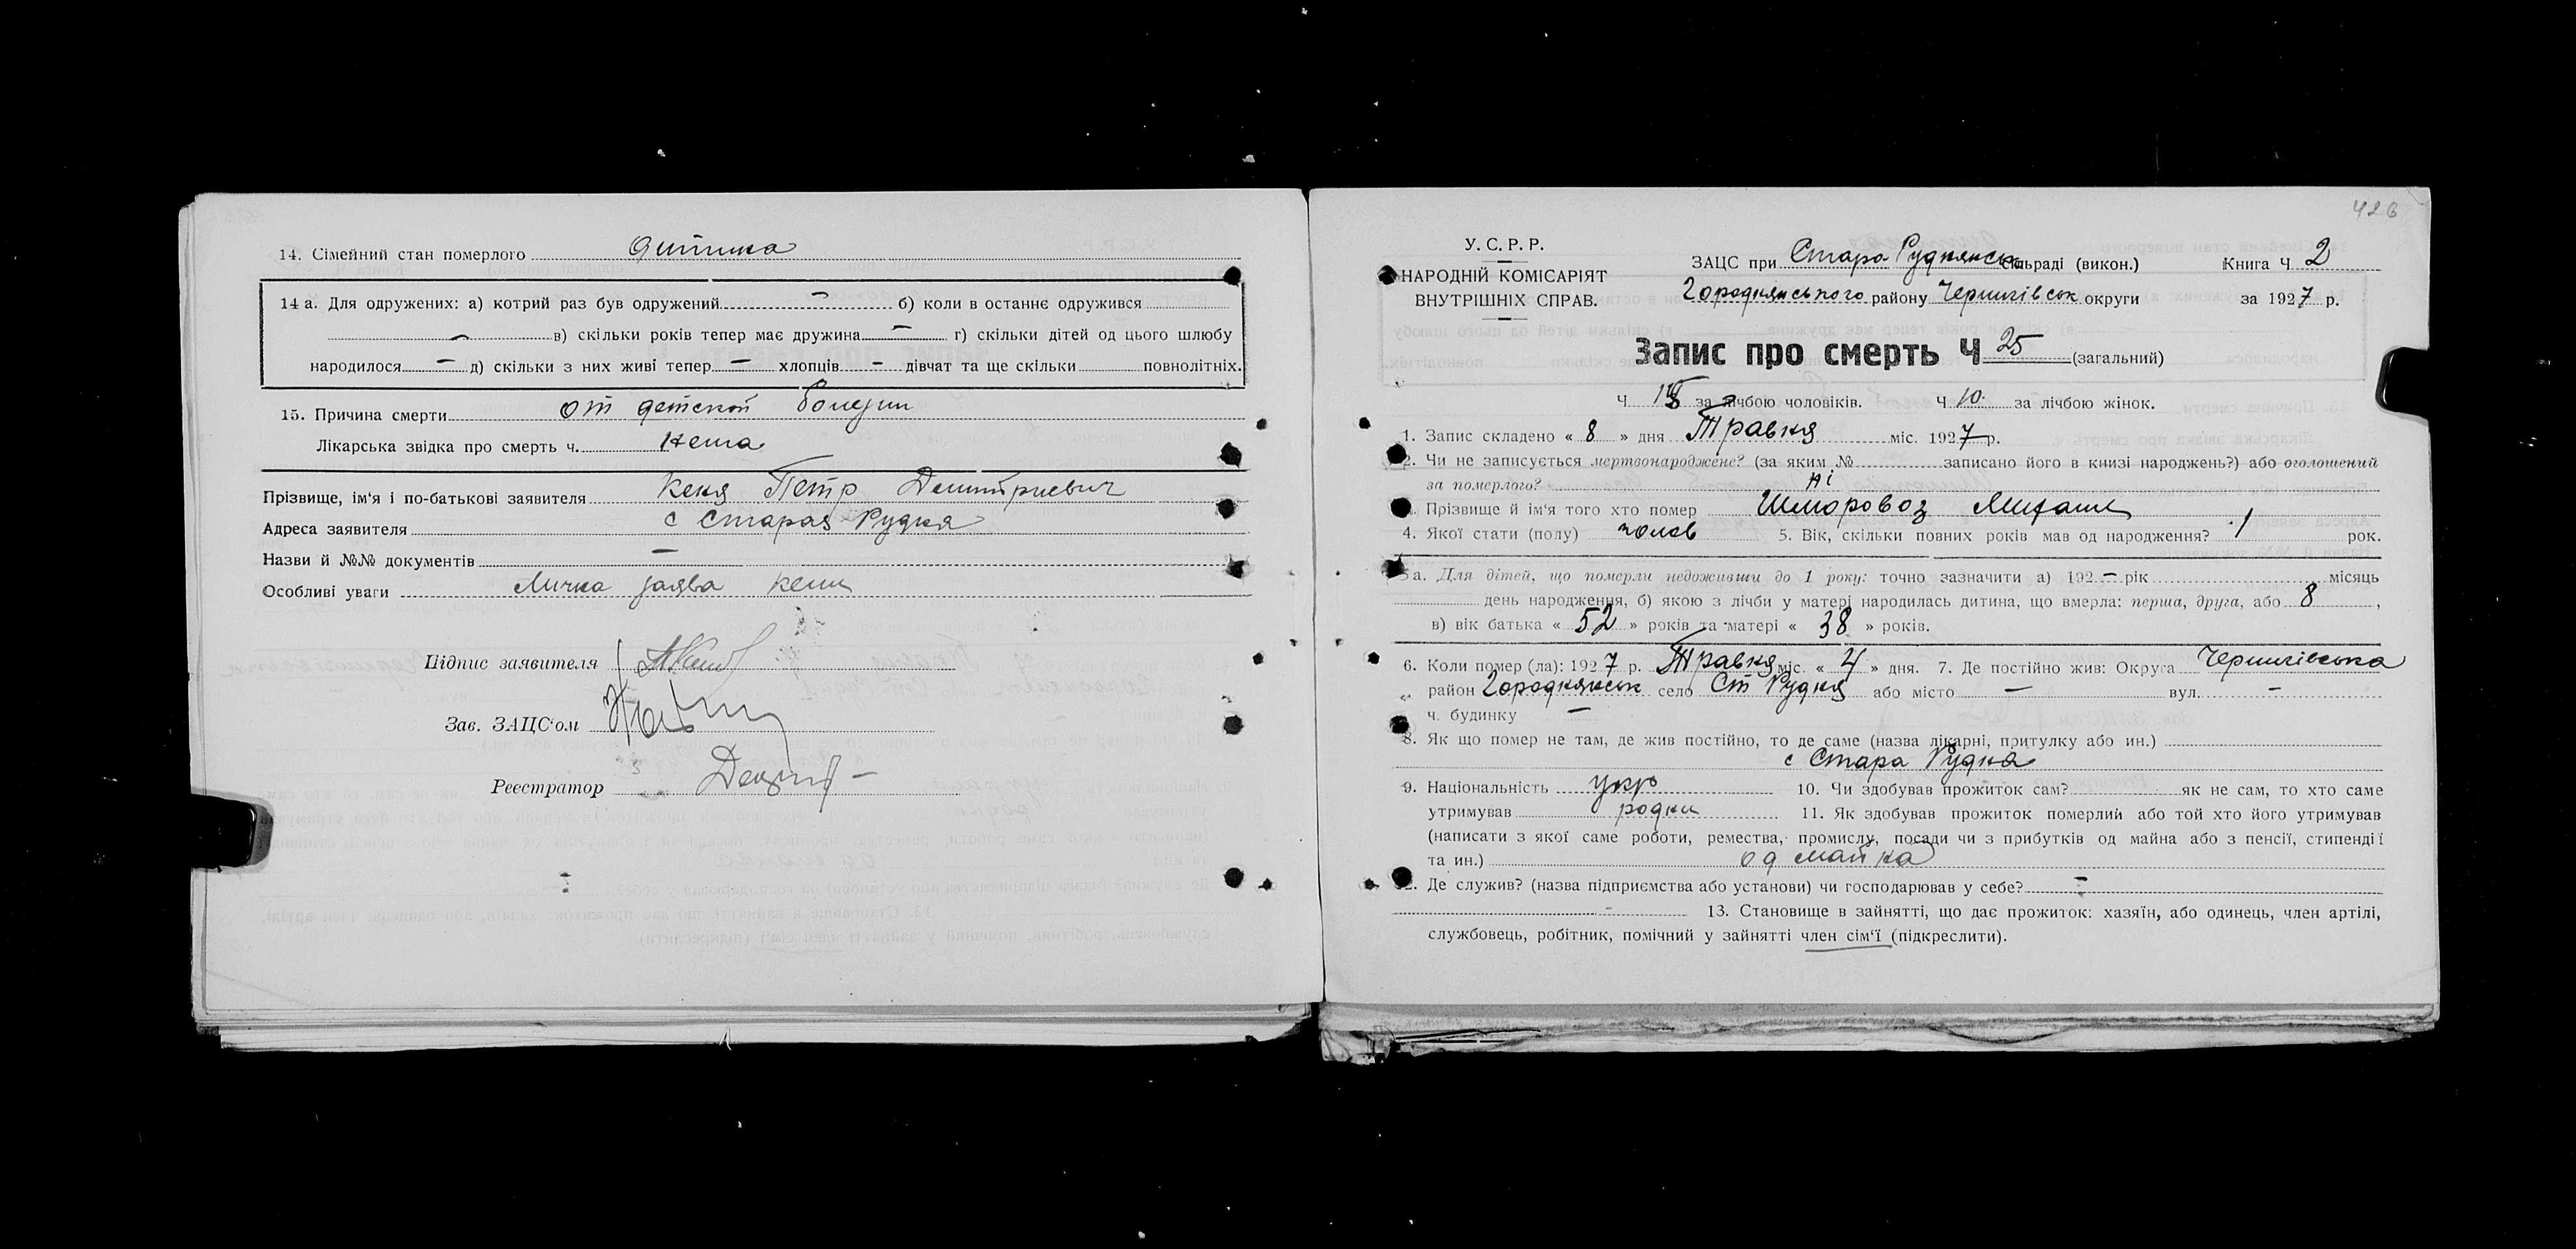 14. Сімейний стан померлого дитинка
14 а. Для одружених: а) котрий раз був одружений – б) коли в останнє одружився
– в) скільки років тепер має дружина – г) скільки дітей од цього шлюбу
народилося – д) скільки з них живі тепер – хлопців – дівчат та ще скільки повнолітніх.
15. Причина смерти от детской болезни
Лікарська звідка про смерть ч. нема
Прізвище, ім'я і по-батькові заявителя Кеня Петр Дмитриевич
Адреса заявителя с Старая Рудня
Назви й №№ документів –
Особливі уваги Лична заява Кени
Підпис заявителя
Зав. ЗАЦС'ом
Реєстратор
426
У. С. Р. Р.
НАРОДНІЙ КОМІСАРІЯТ
ВНУТРІШНІХ СПРАВ.
ЗАЦС при Старо-Руднянськ сільраді (викон.) Книга Ч 2
Городнянського району Чернигівськ округи за 1927 р.
Запис про смерть Ч 25 (загальний)
Ч за лічбою чоловіків. Ч 10 за лічбою жінок.
1. Запис складено « 8 » дня Травня міс. 1927 р.
2. Чи не записується мертвонароджене? (за яким № записано його в книзі народжень?) або оголошений
за померлого? Ні
3. Прізвище й ім'я того хто помер Шморовоз
4. Якої стати (полу) чолов 5. Вік, скільки повних років мав од народження? 1 рок.
5 а. Для дітей, що померли недоживши до 1 року: точно зазначити а) 192 – рік місяць
день народження, б) якою з лічби у матері народилась дитина, що вмерла: перша, друга, або 8 ,
в) вік батька « 52 » років та матері « 38 » років.
6. Коли помер (ла): 1927 р. Травня міс. « 4 » дня. 7. Де постійно жив: Округа Чернигівська
район Городнянськ село Ст Рудня або місто – вул. –
ч. будинку –
8. Як що помер не там, де жив постійно, то де саме (назва лікарні, притулку або ин.)
с Стара Рудня
9. Національність укр 10. Чи здобував прожиток сам? як не сам, то хто саме
утримував родни 11. Як здобував прожиток померлий або той хто його утримував
(написати з якої саме роботи, ремества, промислу, посади чи з прибутків од майна або з пенсії, стипендії
та ин.) од майна
12. Де служив? (назва підприємства або установи) чи господарював у себе? –
– 13. Становище в зайнятті, що дає прожиток: хазяїн, або одинець, член артілі,
службовець, робітник, помічний у зайнятті член сім'ї (підкреслити).